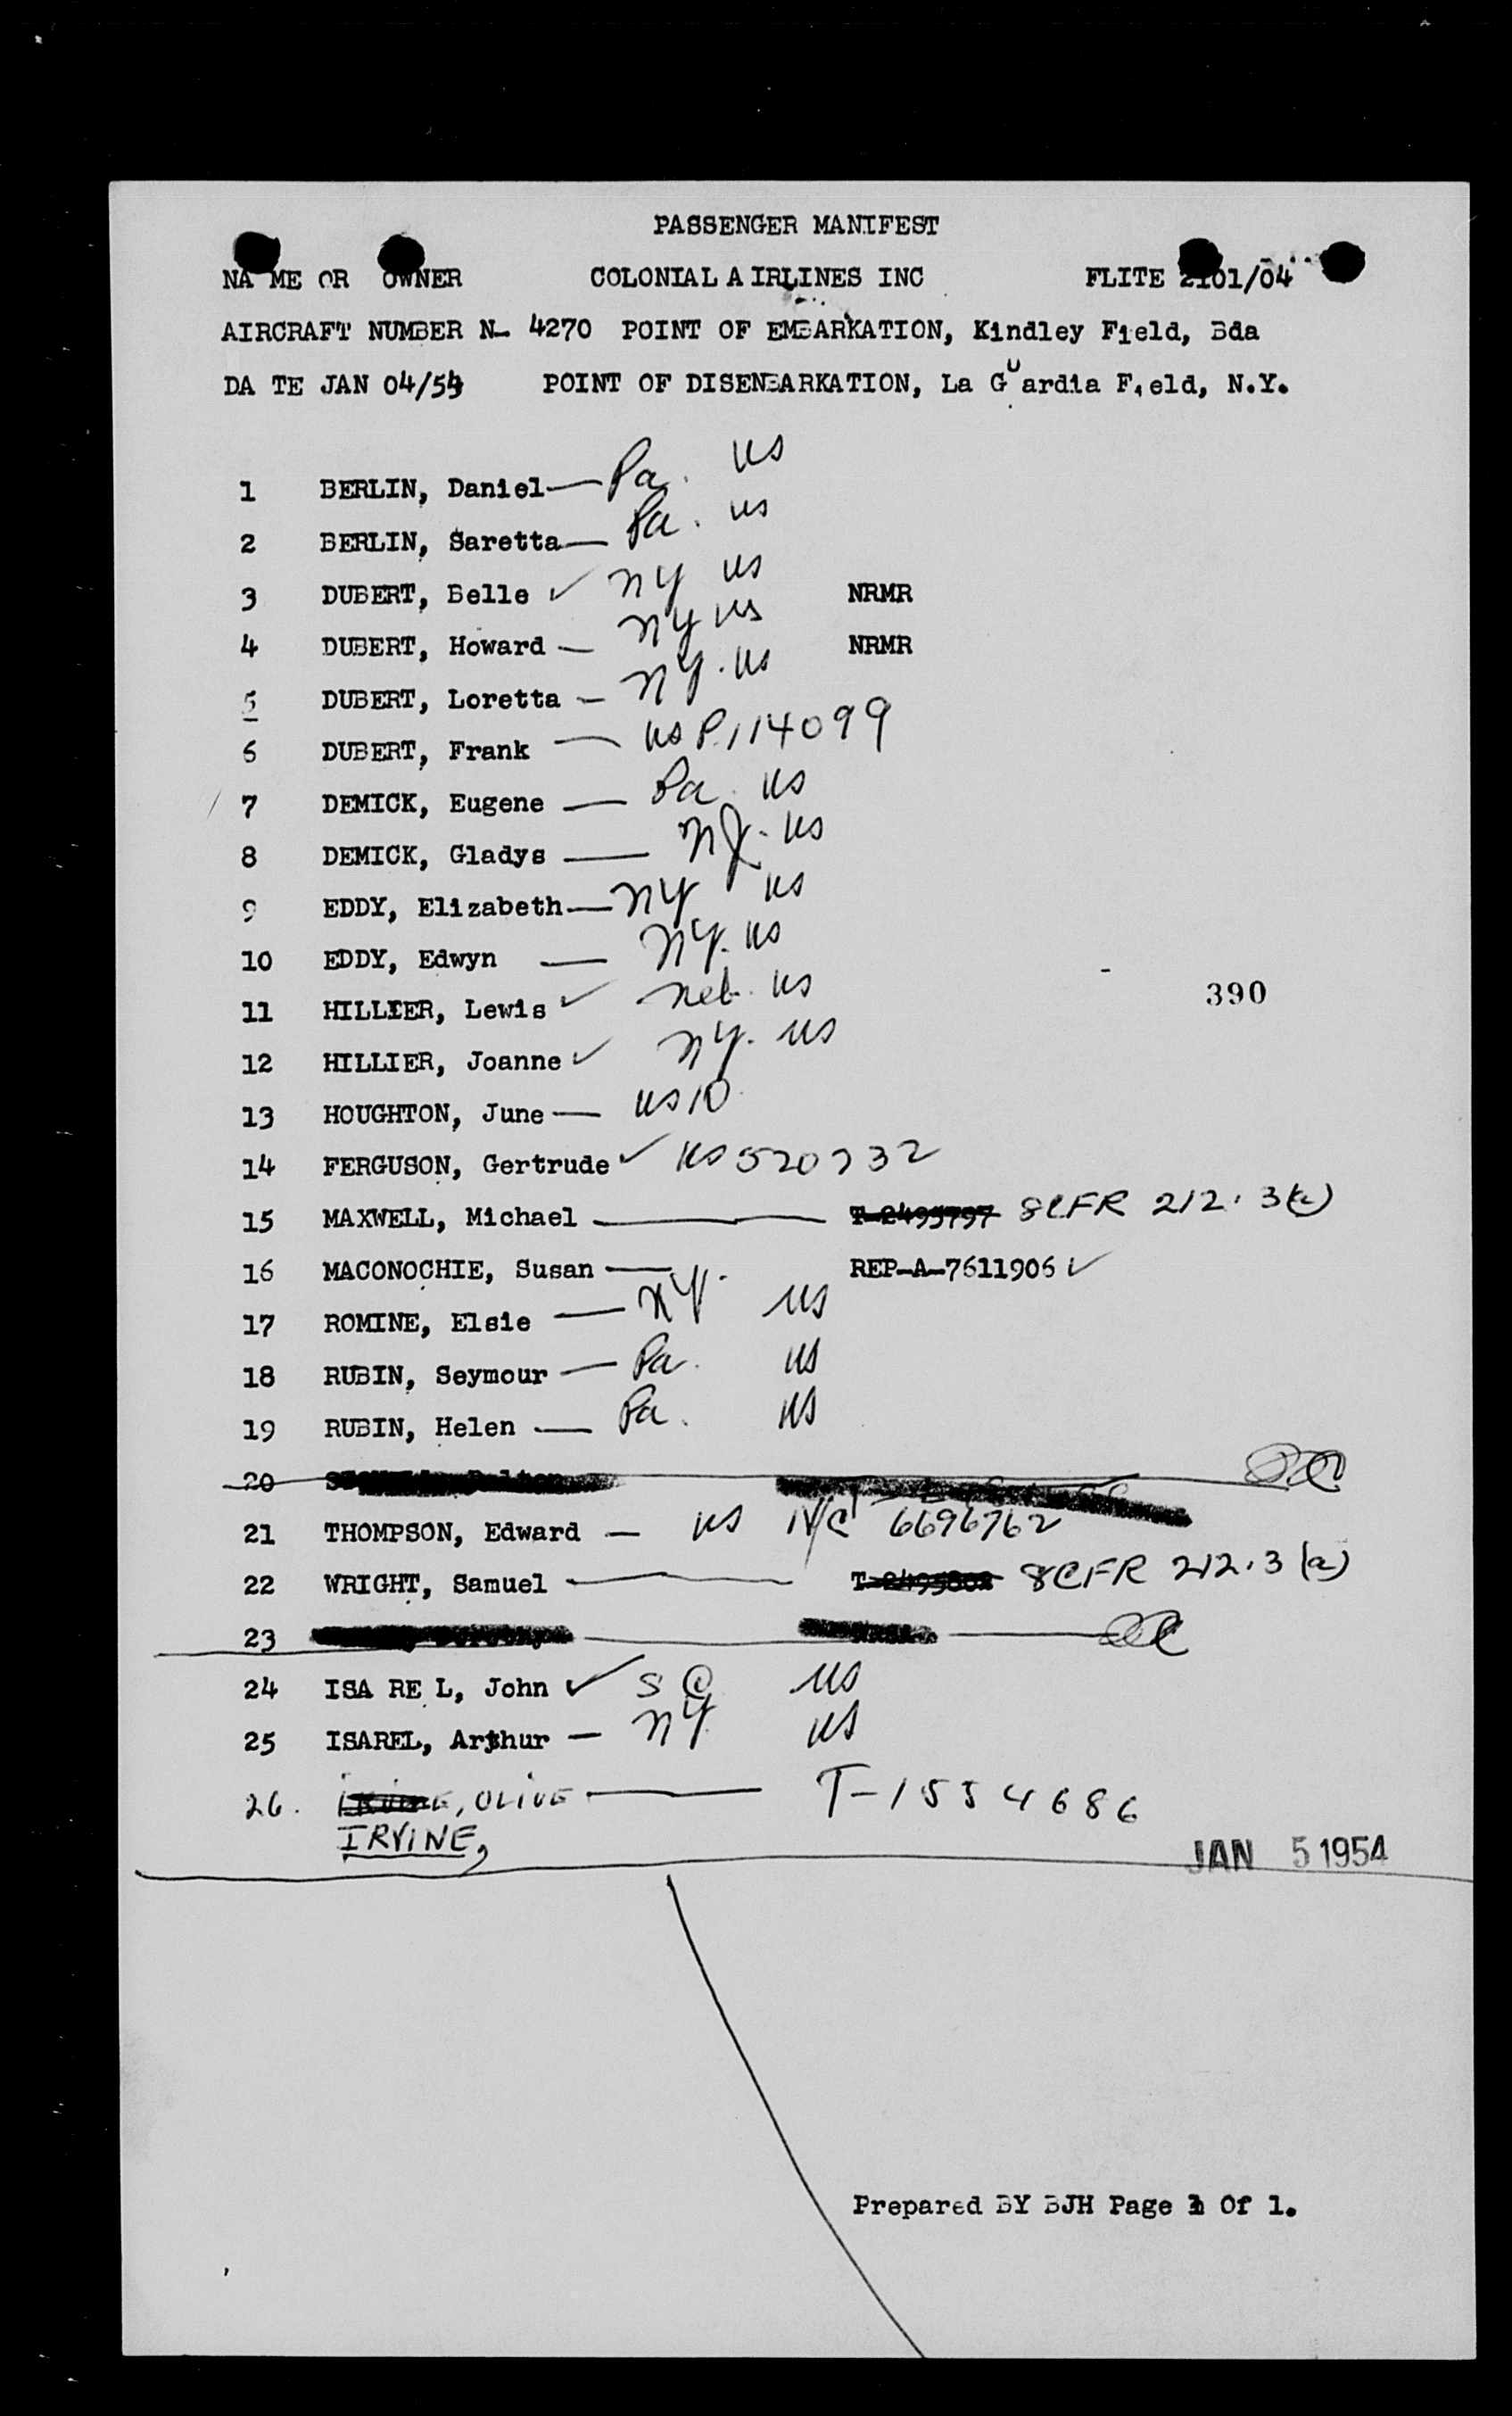 PASSENGER MANIFEST
NA ME OR OWNER COLONIAL A IRLINES INC FLITE 2101/04
AIRCRAFT NUMBER N- 4270 POINT OF EMBARKATION, Kindley Field, Bda
DA TE JAN 04/54 POINT OF DISENBARKATION, La Guardia Field, N.Y.
1 BERLIN, Daniel — Pa. US
2 BERLIN, Saretta — Pa. US
3 DUBERT, Belle ✓ NY US NRMR
4 DUBERT, Howard — NY US NRMR
5 DUBERT, Loretta — NY. US
6 DUBERT, Frank — US P.114099
7 DEMICK, Eugene — Pa. US
8 DEMICK, Gladys — NJ. US
9 EDDY, Elizabeth — NY US
10 EDDY, Edwyn — NY. US
390
11 HILLIER, Lewis ✓ Neb. US
12 HILLIER, Joanne ✓ NY. US
13 HOUGHTON, June — US ID
14 FERGUSON, Gertrude ✓ US 520732
15 MAXWELL, Michael — T-2495797 8CFR 212.3(a)
16 MACONOCHIE, Susan — REP-A-7611906 ✓
17 ROMINE, Elsie — NY. US
18 RUBIN, Seymour — Pa. US
19 RUBIN, Helen — Pa. US
20
21 THOMPSON, Edward — US N/C 6696762
22 WRIGHT, Samuel — T-2495802 8CFR 212.3(a)
23
24 ISA RE L, John ✓ S C US
25 ISAREL, Arthur — NY US
26. IRVINE, OLIVE — T-1554686
IRVINE,
JAN 5 1954
Prepared BY BJH Page 1 Of 1.